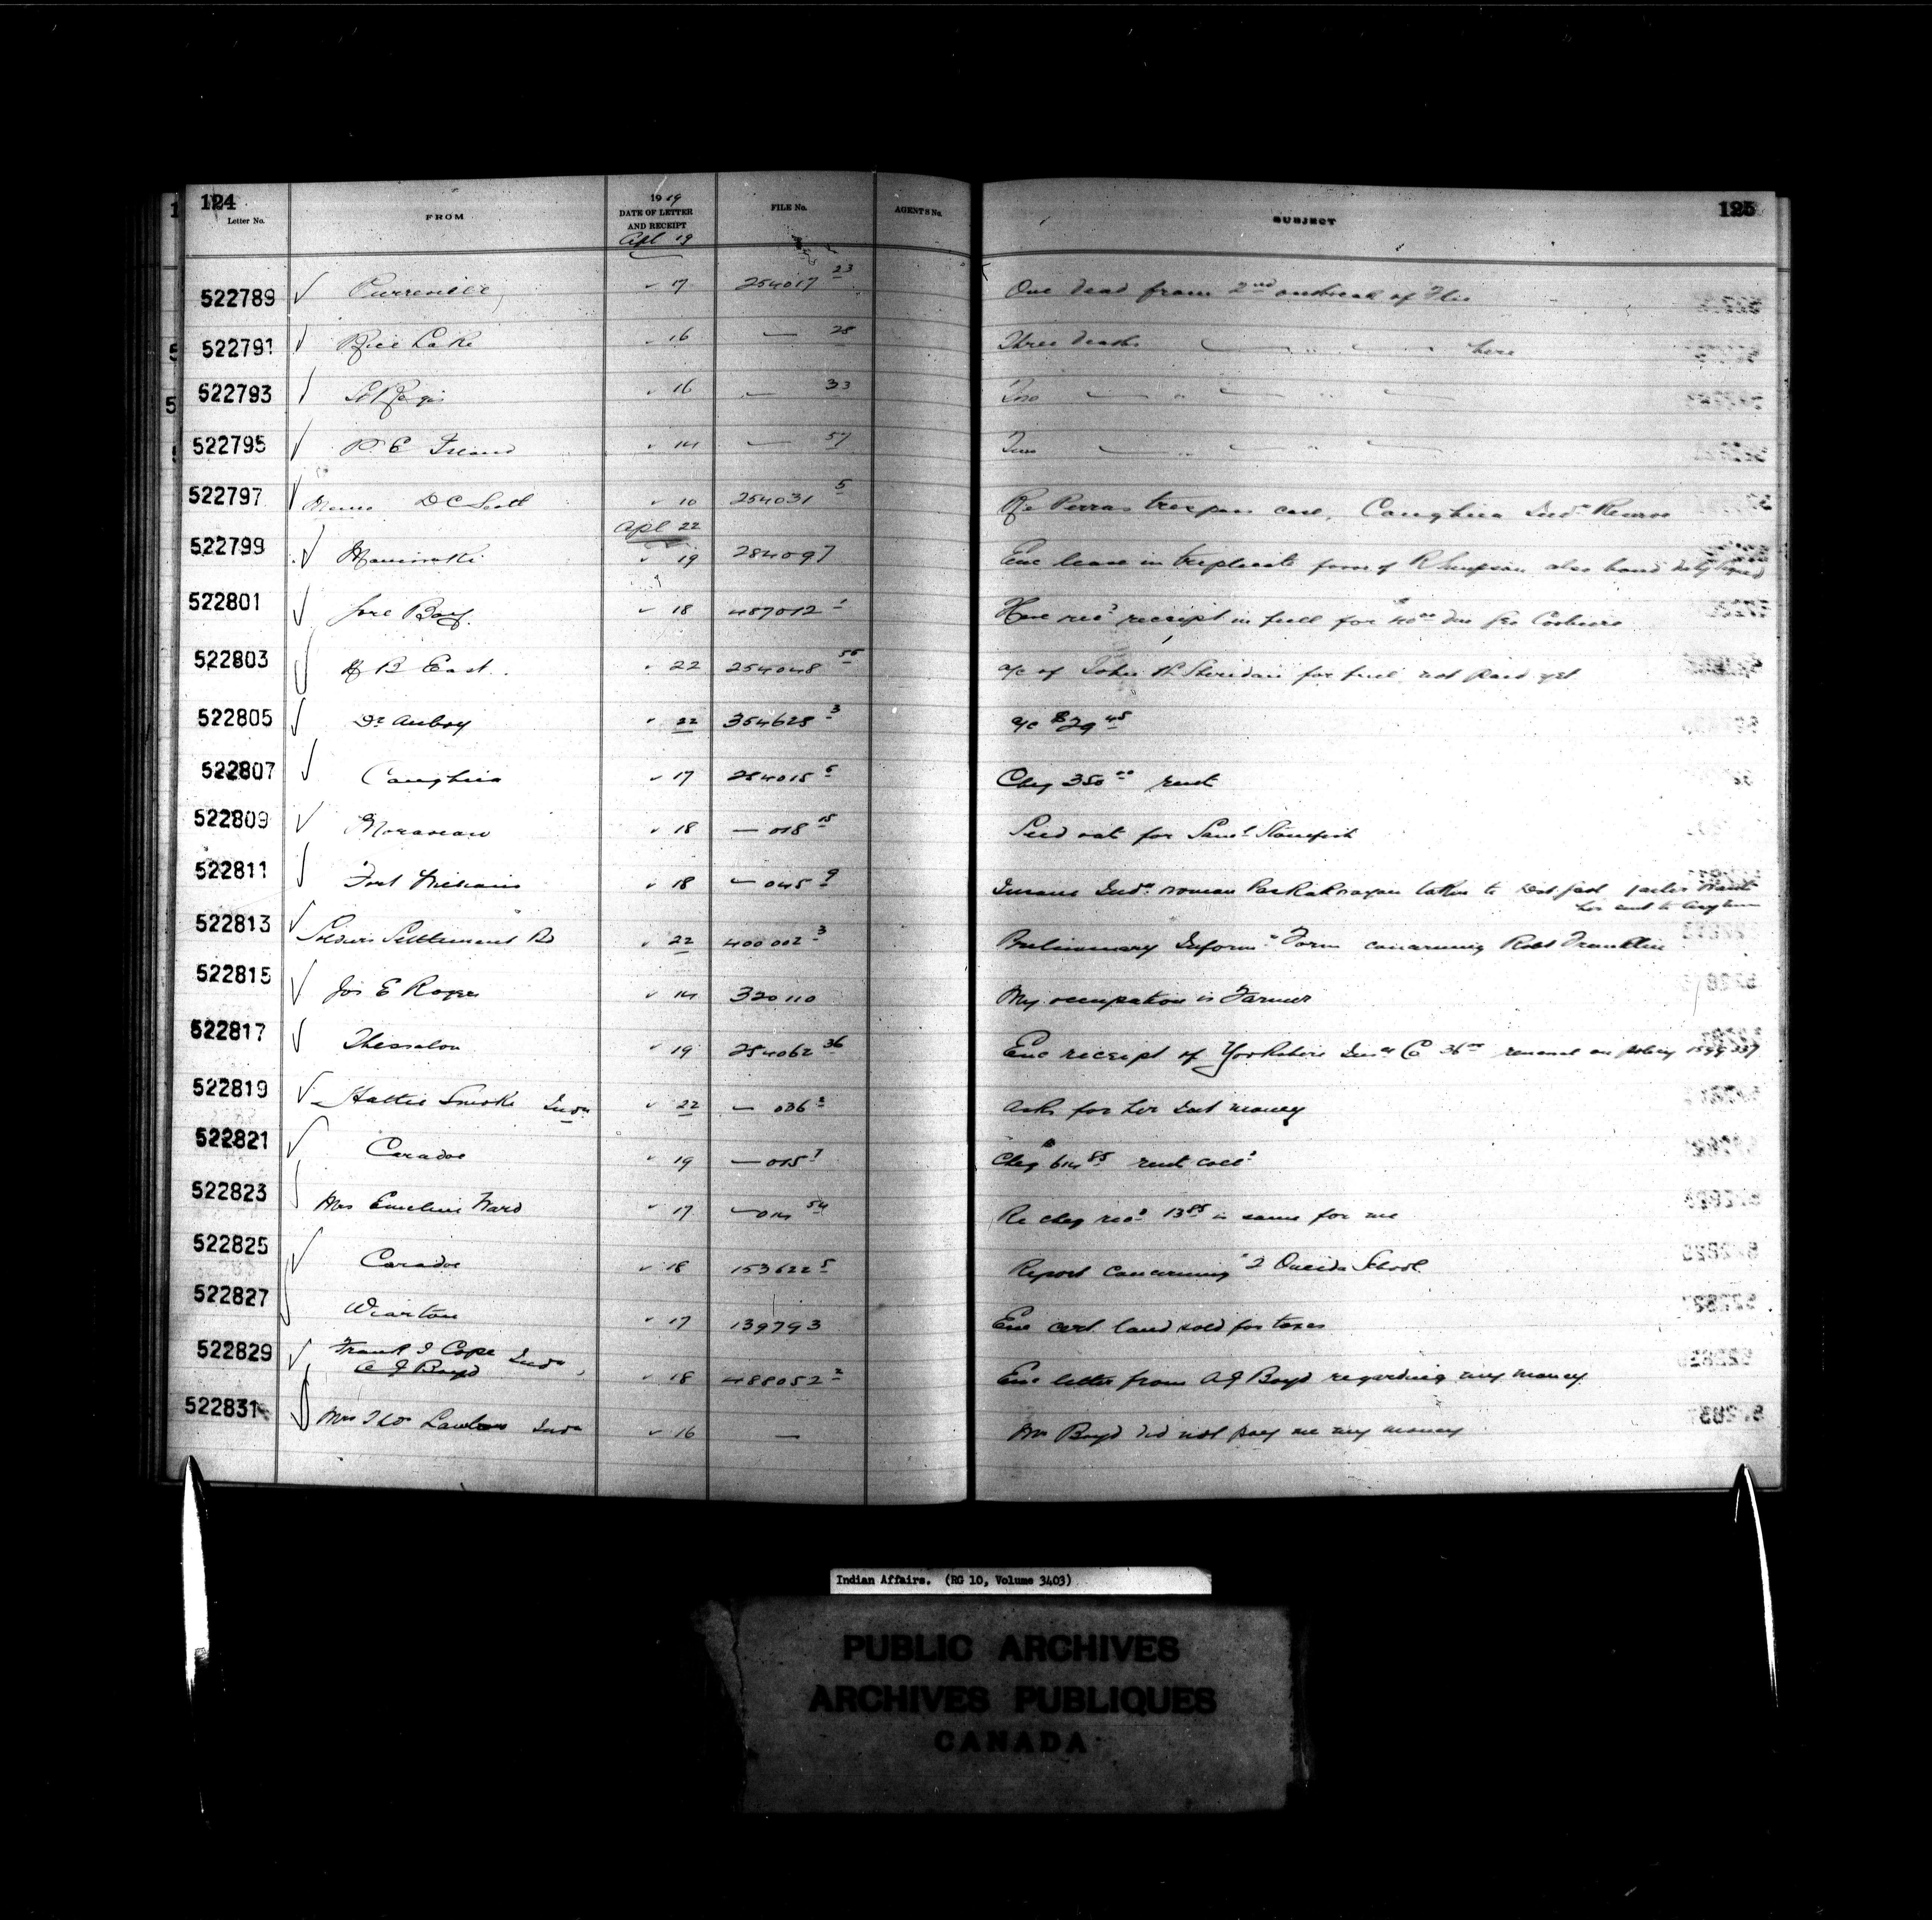 124
Letter No.
FROM
1919
DATE OF LETTER
AND RECEIPT
FILE No.
AGENT'S No.
SUBJECT
125
Apl 19
522789 Pierreville 17 254017 23 One dead from 2nd outbreak of Flu
522791 Rice Lake 16 — 28 Three deaths — " — here
522793 St Regis 16 — 33 Two — " — " —
522795 P. E Island 14 — 57 Two — " — " —
522797 Memo D C Scott 10 254031 5 Re Perras trespass case, Caughna Indn Reserve
Apl 22
522799 Maniwaki 19 284097 Enc lease in triplicate form of also bond duly signed
522801 Gore Bay 18 487012 1 Have recd receipt in full for 40 00 due Geo
522803 H B East 22 254048 55 a/c of John H Sheridan for fuel not paid yet
522805 Dr Aubry 22 354628 3 a/c $29 45
522807 Caughna 17 254015 6 Cheq 350 00 rent
522809 Moravian 18 — 018 15 Seed oats for Saml Stonefish
522811 Fort William 18 — 045 9 Insane Indn woman taken to Dist jail jailer wants
her sent to asylum
522813 Soldiers Settlement Bd 22 400002 3 Preliminary Informn Form concerning Robt Franklin
522815 Jos E Roger 14 320110 My occupation is Farmer
522817 Thessalon 19 254062 36 Enc receipt of Yorkshire Insce Co 36 00 renewal on policy 1599337
522819 Hattie Smoke Indn 22 — 036 2 Asks for her Int money
522821 Caradoc 19 — 015 7 Cheq 614 85 rent colld
522823 Mrs Emeline Ward 17 — 014 54 Re cheq recd 13 85 is same for me
522825 Caradoc 18 153622 5 Report concerning 2 Oneida School
522827 Wiarton 17 139793 Enc cert. land sold for taxes
522829 Frank I Cope Indn
A J Boyd 18 488052 2 Enc letter from A J Boyd regarding my money
522831 Mrs Indn 16 — Mr Boyd did not pay me my money
Indian Affairs. (RG 10, Volume 3403)
PUBLIC ARCHIVES
ARCHIVES PUBLIQUES
CANADA